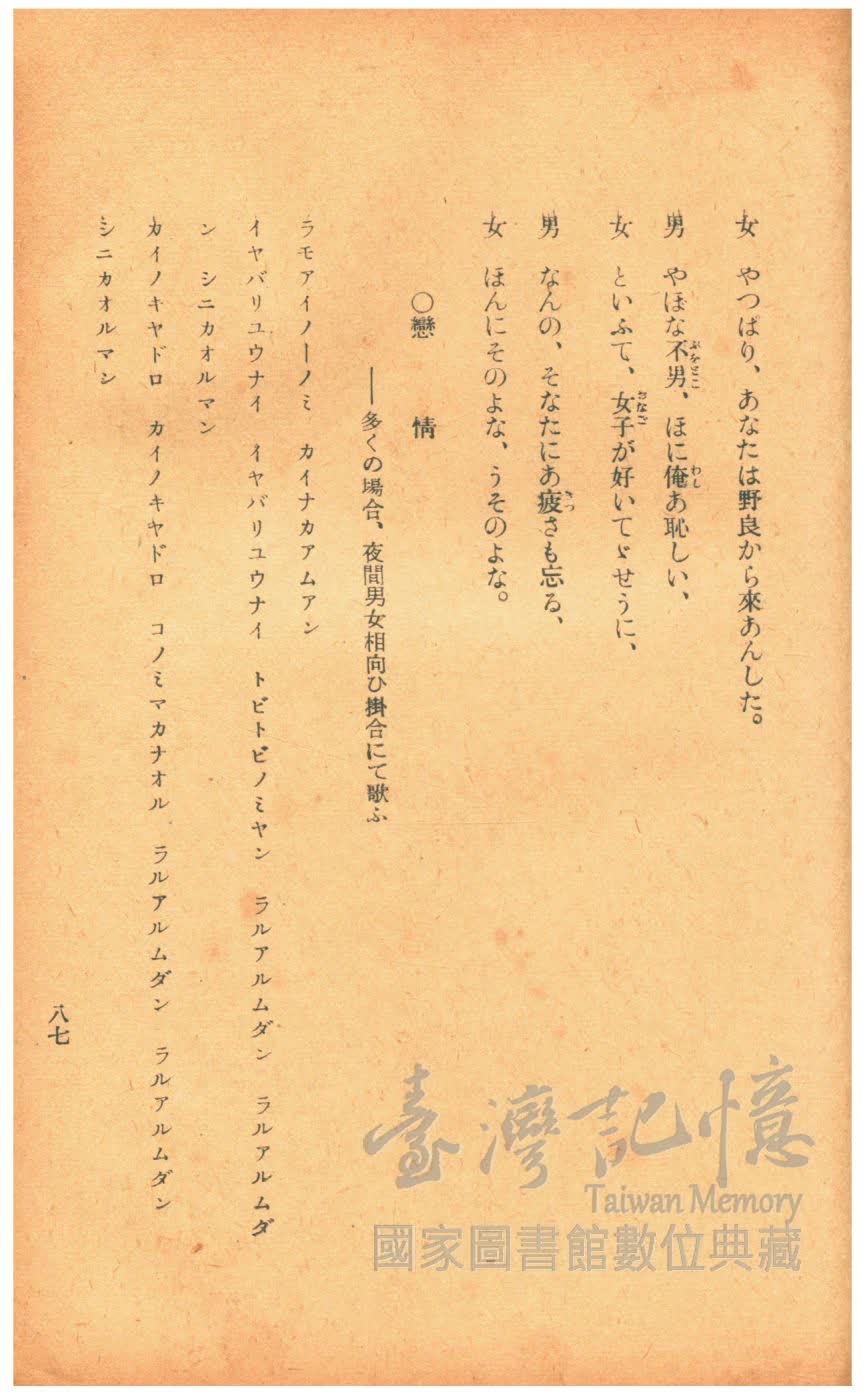 女　やつぱり、あなたは野良から來あんした。
男　やぼな不男、ほに俺あ恥しい、
女　といふて、女子が好いてゞせうに、
男　なんの、そなたにあ疲さも忘る、
女　ほんにそのよな、うそのよな。
〇戀　情
――多くの場合、夜間男女相向ひ掛合にて歌ふ
ラモアイノーノミ　カイナカアムアン
イヤバリユウナイ　イヤバリユウナイ　トビトビノミヤン　ラルアルムダン　ラルアルムダ
ン　シニカオルマン
カイノキヤドロ　カイノキヤドロ　コノミマカナオル　ラルアルムダン　ラルアルムダン
シニカオルマン
八七
臺灣記憶
Taiwan Memory
國家圖書館數位典藏